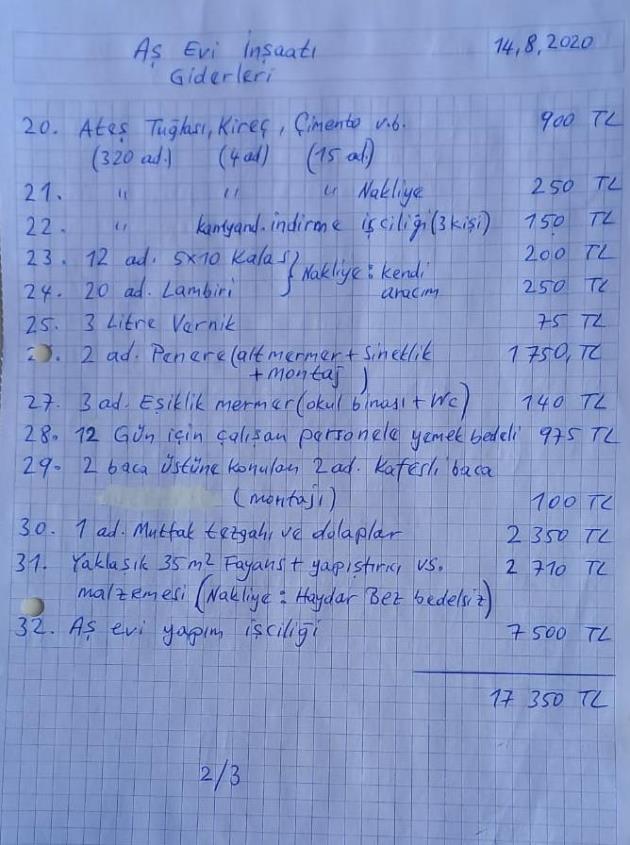 Aş Evi İnşaatı 14,8,2020
Giderleri
20. Ateş Tuğlası, Kireç, Çimento v.b. 900 TL
(320 ad.) (4 ad) (15 ad)
21. " " " Nakliye 250 TL
22. " kamyond. indirme işçiliği (3 kişi) 150 TL
23. 12 ad. 5x10 Kalas 200 TL
Nakliye: kendi
24. 20 ad. Lambiri aracım 250 TL
25. 3 Litre Vernik 75 TL
2 ad. Penere (alt mermer + Sineklik 1 750, TL
+ montaj)
27. 3 ad. Eşiklik mermer (okul binası + Wc) 140 TL
28. 12 Gün için çalışan personele yemek bedeli 975 TL
29. 2 baca üstüne konulan 2 ad. Kafesli baca
(montajı) 100 TL
30. 1 ad. Mutfak tezgahı ve dolaplar 2 350 TL
31. Yaklasık 35 m² Fayans + yapıştırıcı vs. 2 710 TL
malzemesi (Nakliye: Haydar Bez bedelsiz)
32. Aş evi yapım işçiliği 7 500 TL
17 350 TL
2/3